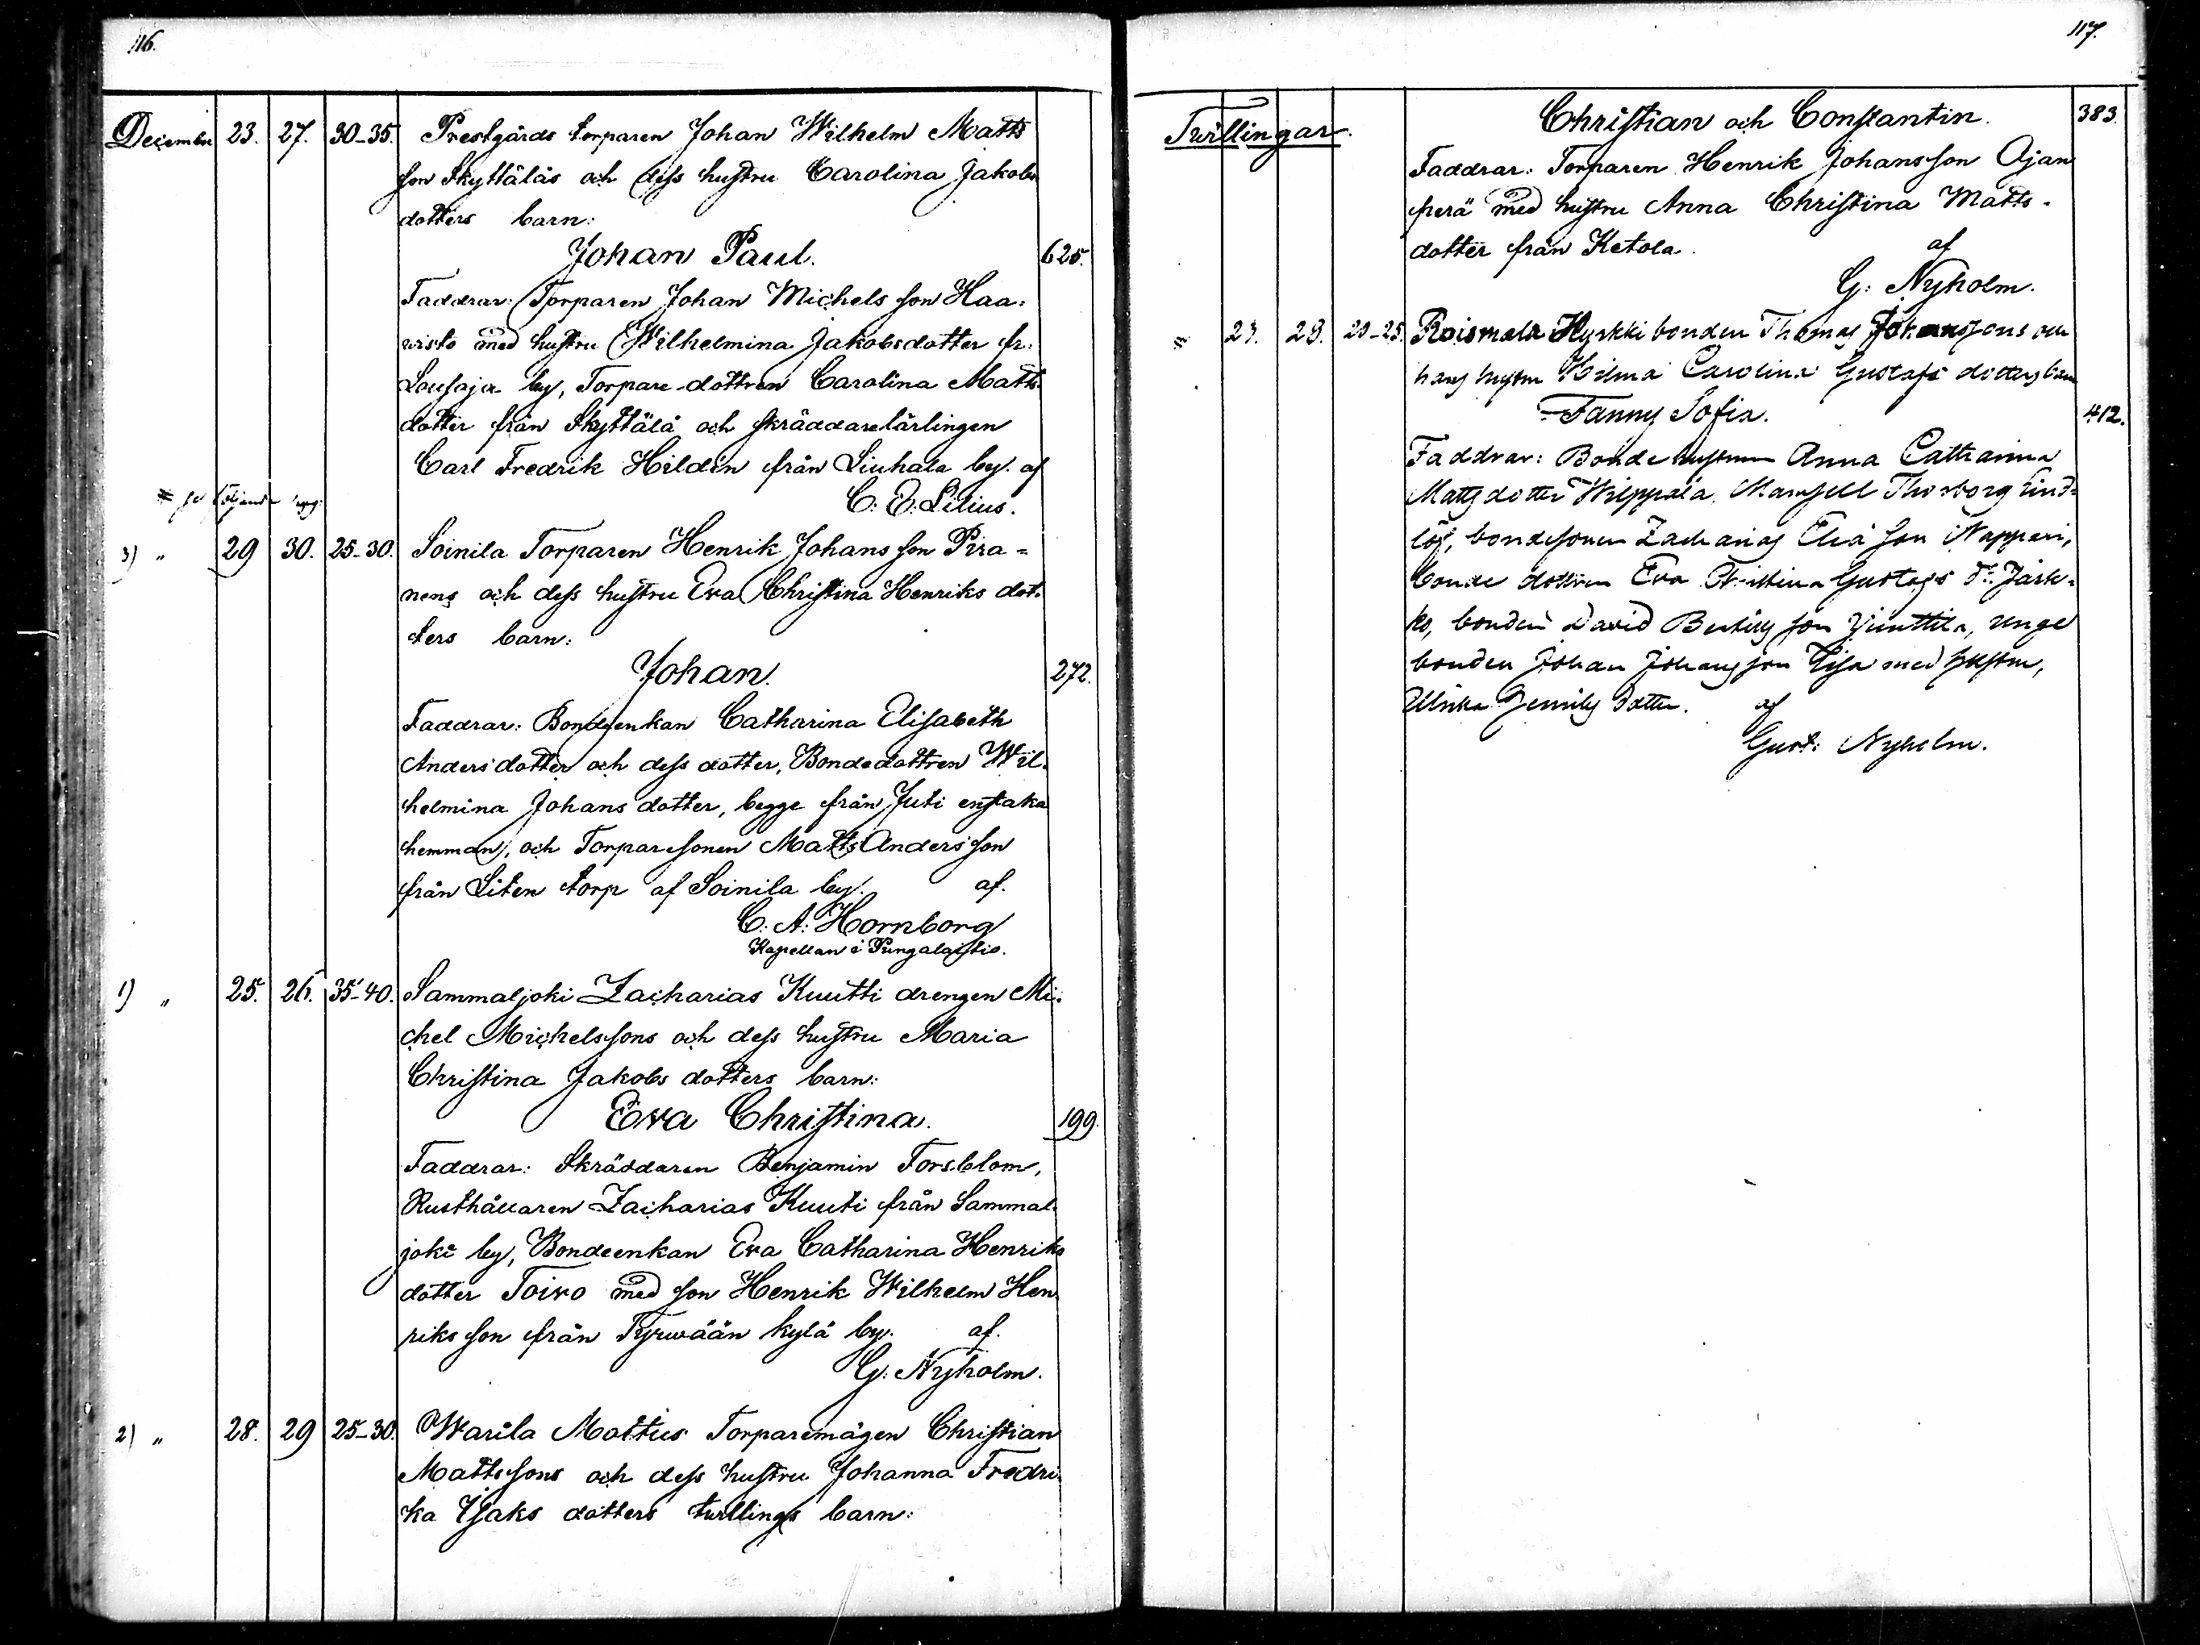 116.
December 23. 27. 30-35. Prestgårds torparen Johan Wilhelm Matts
son Skyttäläs och dess hustru Carolina Jakobs
dotters barn:
Johan Paul. 625.
Faddrar: Torparen Johan Michels son Haa=
visto med hustru Wilhelmina Jakobsdotter fr.
Lousaja by, Torpare-dottren Carolina Matts
dotter från Skyttälä och skräddarelärlingen
Carl Fredrik Hildén från Liuhala by. af
C. E. Lilius.
3) " 29 30. 25-30. Soinila Torparen Henrik Johans son Pira=
nens och dess hustru Eva Christina Henriks dot-
ters barn:
Johan. 272.
Faddrar: Bondeenkan Catharina Elisabeth
Andersdotter och dess dotter, Bondedottren Wil-
helmina Johans dotter, begge från Juti enstaka
hemman, och Torparesonen Matts Anders son
från Liten torp af Soinila by. af.
C. A. Hornborg
Kapellan i Pungalaitio.
1) " 25. 26. 35-40. Sammaljoki Zacharias Kuutti drengen Mi-
chel Michelssons och dess hustru Maria
Christina Jakobs dotters barn:
Eva Christina. 199.
Faddrar: Skräddaren Benjamin Forsblom,
Rusthållaren Zacharias Kuuti från Sammal-
joki by, Bondeenkan Eva Catharina Henriks
dotter Toivo med son Henrik Wilhelm Hen-
riks son från Tyrwään kylä by. af.
G. Nyholm.
2) " 28. 29 25-30. Warila Mattus Torparemågen Christian
Mattssons och dess hustru Johanna Fredri-
ka Isaks dotters tvillings barn:
117.
Tvillingar. Christian och Constantin. 383.
Faddrar: Torparen Henrik Johansson Ojan
perä med hustru Anna Christina Matts-
dotter från Ketola. af
G. Nyholm.
23. 29. 20-25. Roismala Hyrkki bonden Thomas Johanssons och
hans hustru Hilma Carolina Gustafs dotters barn
Fanny Sofia. 412.
Faddrar: Bonde hustrun Anna Catharina
Matts dotter Wilppala, Mamsell Thorborg Lind-
löf, bondesonen Zacharias Elia son Nappari,
bonde dottren Eva Christina Gustafs dr. Jäsk-
ko, bonden David Bertils son Junttila, unge
bonden Johan Johans son Eija med hustru,
Ulrika dotter. af
Gust. Nyholm.